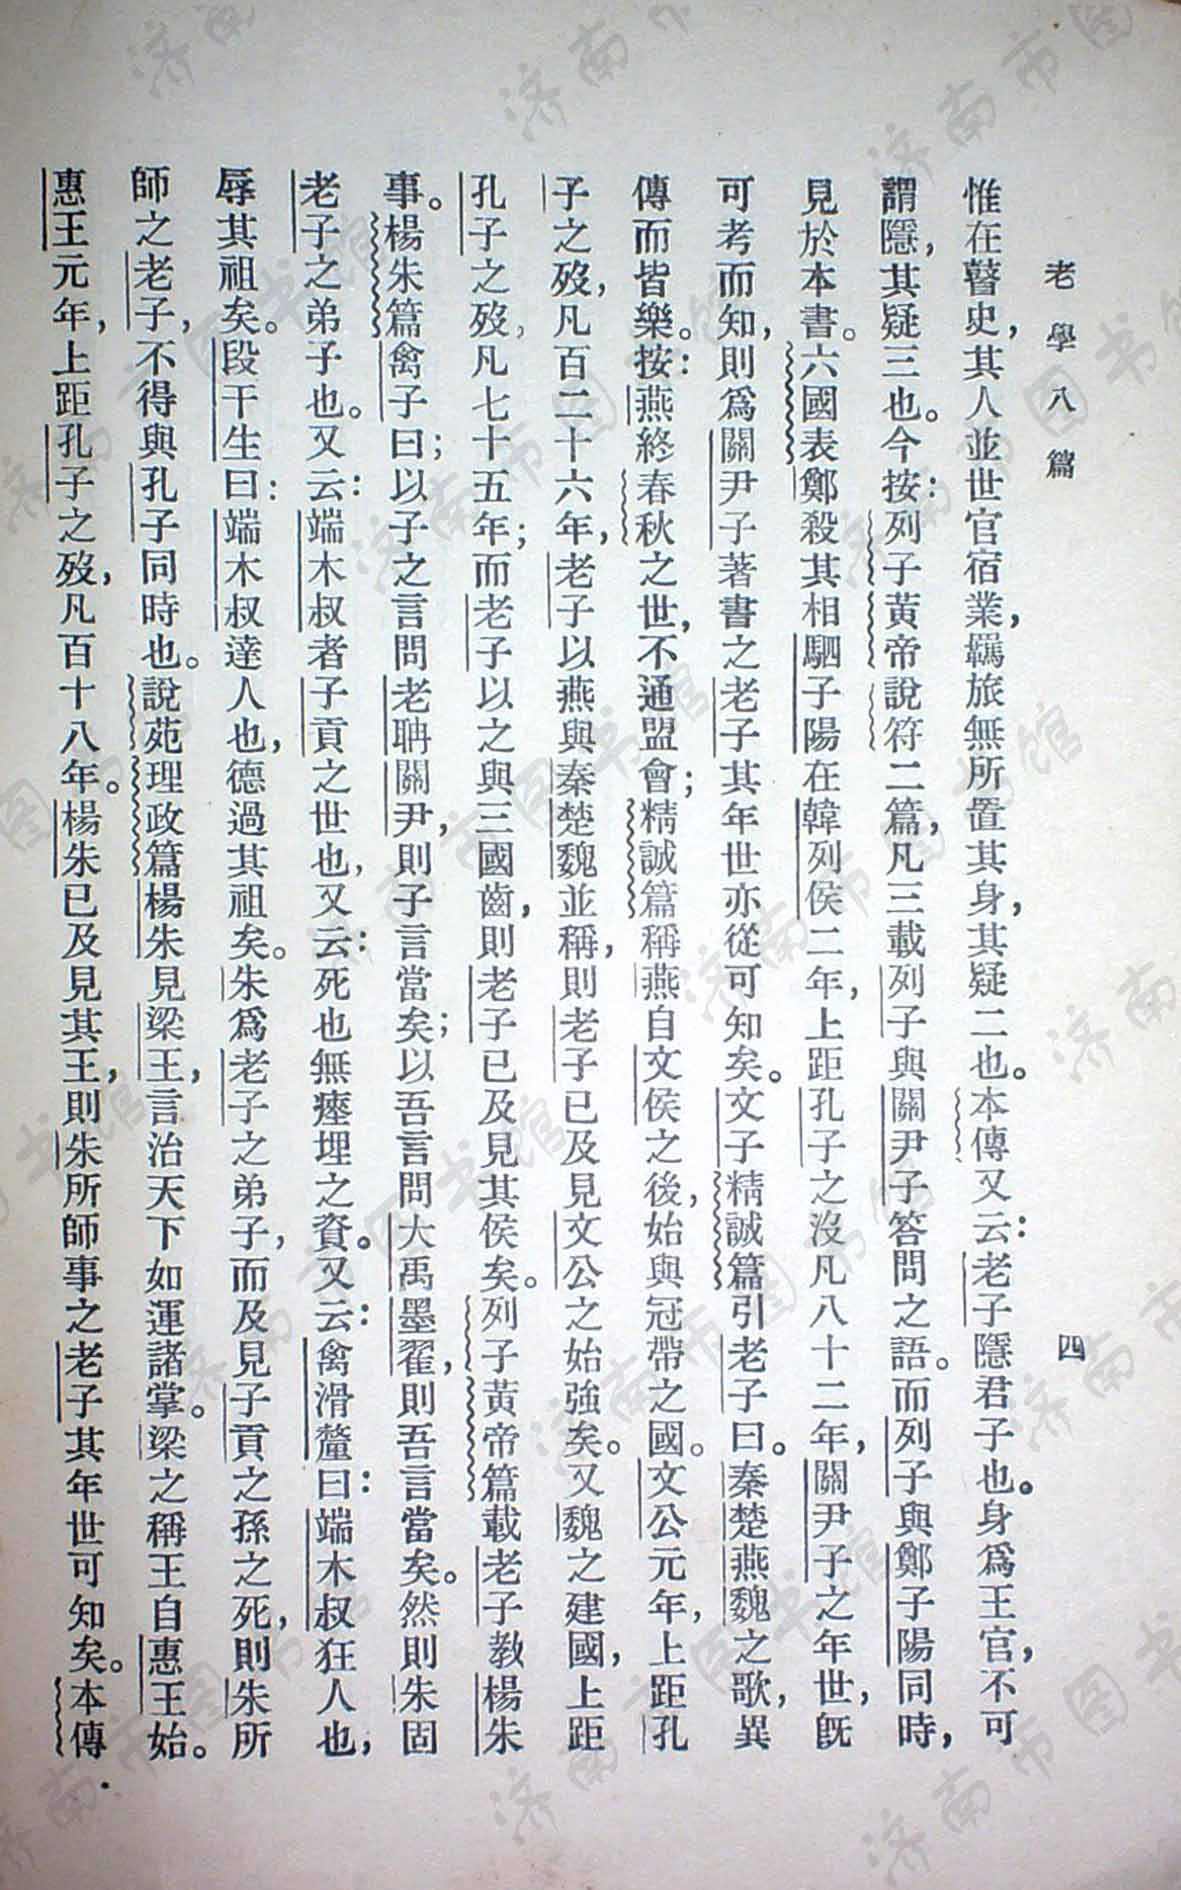 老學八篇
四
惟在瞽史，其人並世官宿業，羈旅無所置其身，其疑二也。本傳又云：老子隱君子也。身爲王官，不可
謂隱，其疑三也。今按：列子黃帝說符二篇，凡三載列子與關尹子答問之語。而列子與鄭子陽同時，
見於本書。六國表鄭殺其相駟子陽在韓列侯二年，上距孔子之沒凡八十二年，關尹子之年世，旣
可考而知，則爲關尹子著書之老子其年世亦從可知矣。文子精誠篇引老子曰。秦楚燕魏之歌，異
傳而皆樂。按：燕終春秋之世，不通盟會；精誠篇稱燕自文侯之後，始與冠帶之國。文公元年，上距孔
子之歿，凡百二十六年，老子以燕與秦楚魏並稱，則老子已及見文公之始強矣。又魏之建國，上距
孔子之歿，凡七十五年；而老子以之與三國齒，則老子已及見其侯矣。列子黃帝篇載老子教楊朱
事。楊朱篇禽子曰；以子之言問老聃關尹，則子言當矣；以吾言問大禹墨翟，則吾言當矣。然則朱固
老子之弟子也。又云：端木叔者子貢之世也，又云：死也無瘞埋之資。又云：禽滑釐曰：端木叔狂人也，
辱其祖矣。段干生曰：端木叔達人也，德過其祖矣。朱爲老子之弟子，而及見子貢之孫之死，則朱所
師之老子，不得與孔子同時也。說苑理政篇楊朱見梁王，言治天下如運諸掌。梁之稱王自惠王始。
惠王元年，上距孔子之歿，凡百十八年。楊朱已及見其王，則朱所師事之老子其年世可知矣。本傳